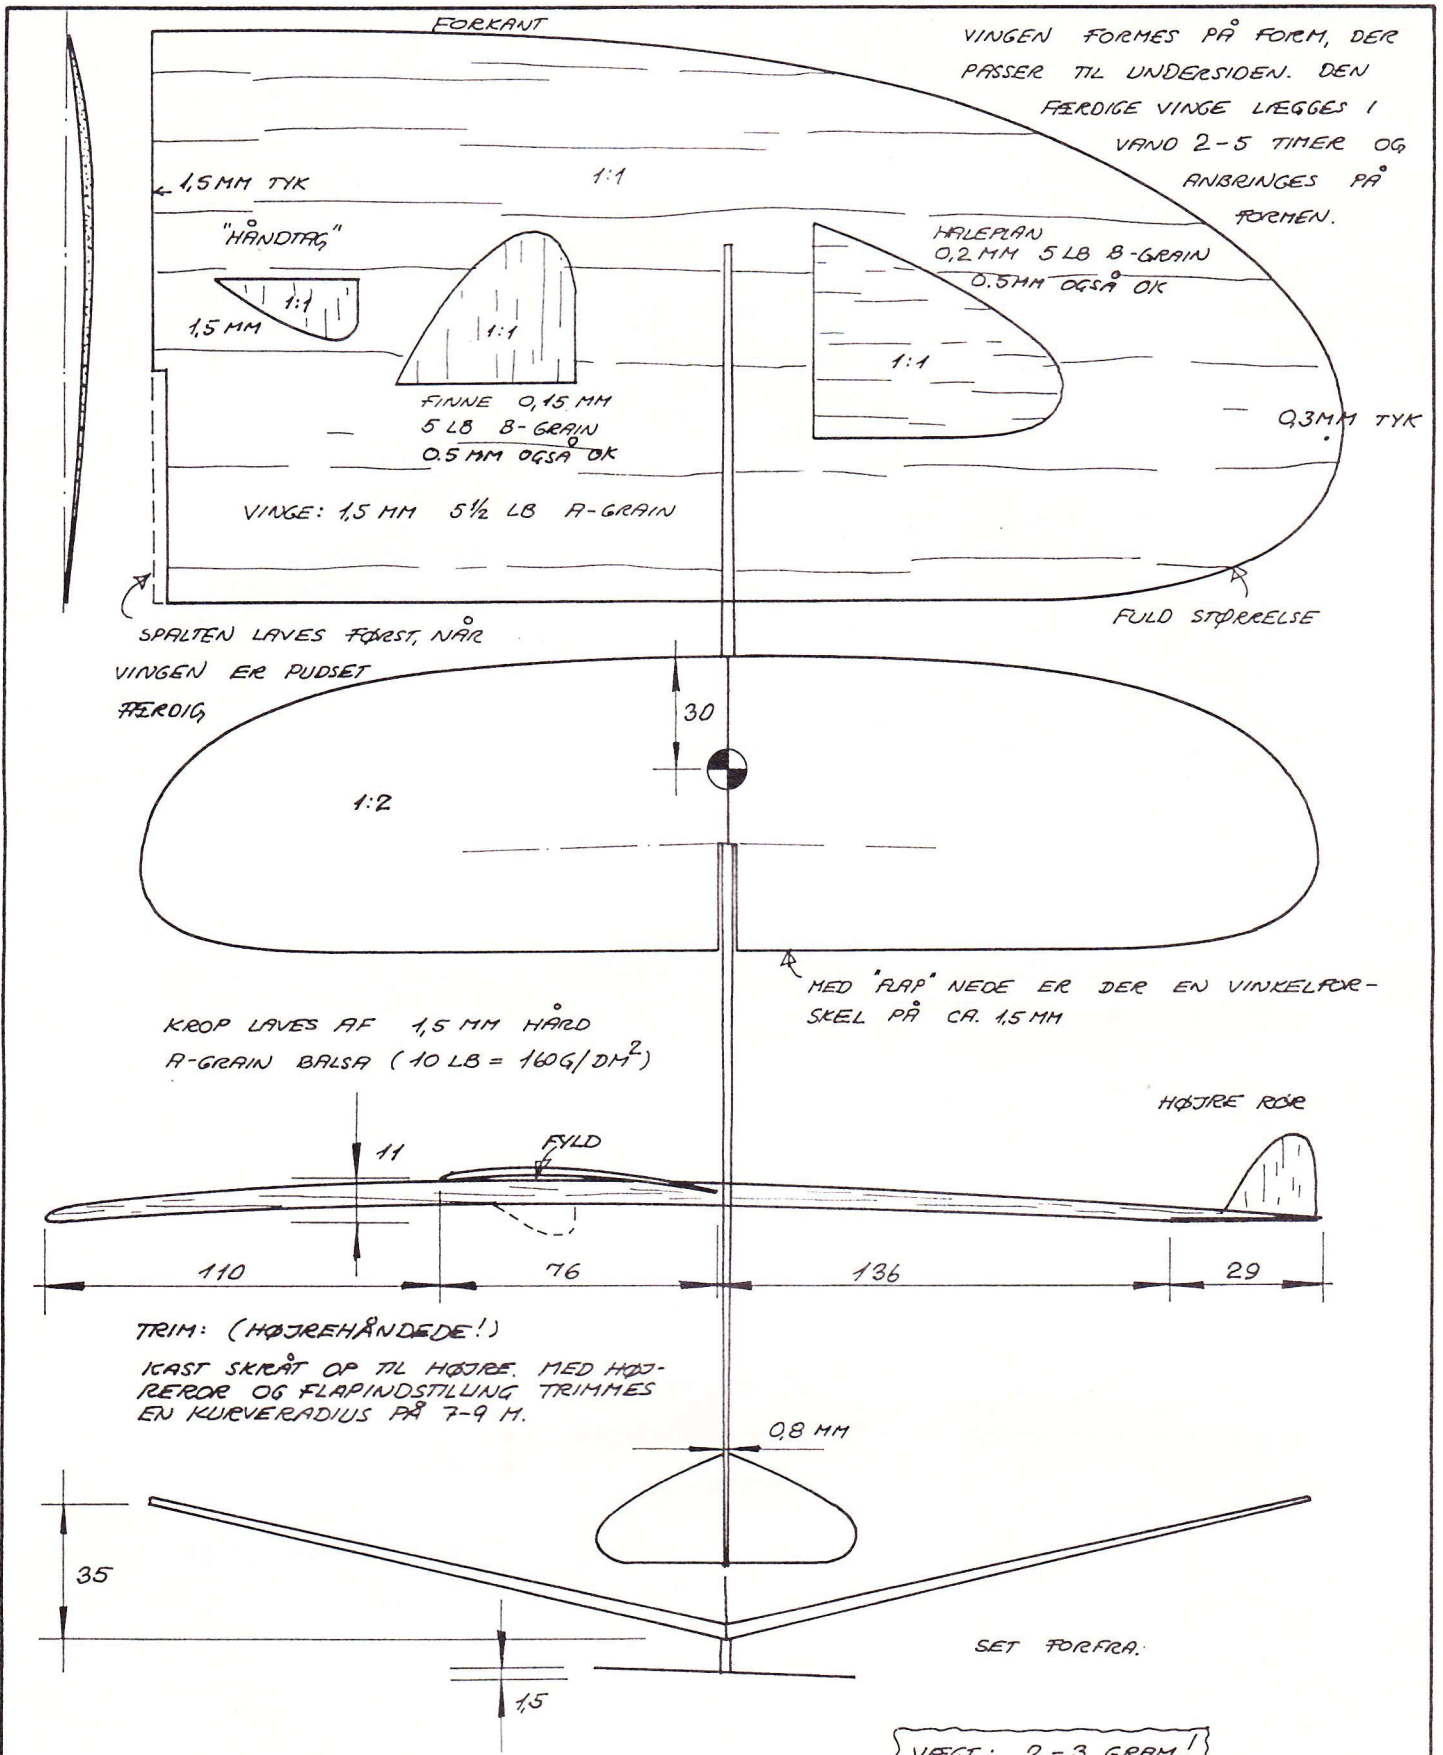 FORKANT
VINGEN FORMES PÅ FORM, DER
PASSER TIL UNDERSIDEN. DEN
FÆRDIGE VINGE LÆGGES I
VAND 2-5 TIMER OG
ANBRINGES PÅ
FORMEN.
1,5 MM TYK
1:1
"HÅNDTAG"
1:1
1,5 MM
1:1
FINNE 0,15 MM
5 LB B-GRAIN
0.5 MM OGSÅ OK
HALEPLAN
0,2 MM 5 LB B-GRAIN
0.5MM OGSÅ OK
1:1
0,3MM TYK
VINGE: 1,5 MM 5½ LB A-GRAIN
SPALTEN LAVES FØRST, NÅR
VINGEN ER PUDSET
FÆRDIG
FULD STØRRELSE
30
1:2
MED "FLAP" NEDE ER DER EN VINKELFOR-
SKEL PÅ CA. 1,5 MM
KROP LAVES AF 1,5 MM HÅRD
A-GRAIN BALSA (10 LB = 160G/DM²)
HØJRE ROR
11
FYLD
110
76
136
29
TRIM: (HØJREHÅNDEDE!)
KAST SKRÅT OP TIL HØJRE. MED HØJ-
REROR OG FLAPINDSTILLUNG TRIMMES
EN KURVERADIUS PÅ 7-9 M.
0,8 MM
35
SET FORFRA.
1,5
VÆGT: 2-3 GRAM!